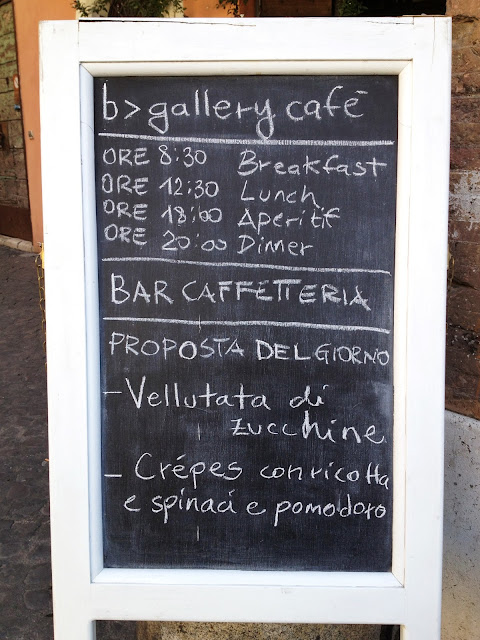 b>gallery café
ORE 8:30 Breakfast
ORE 12:30 Lunch
ORE 18:00 Aperitif
ORE 20:00 Dinner
BAR CAFFETTERIA
PROPOSTA DEL GIORNO
- Vellutata di
zucchine
- Crépes con ricotta
e spinaci e pomodoro